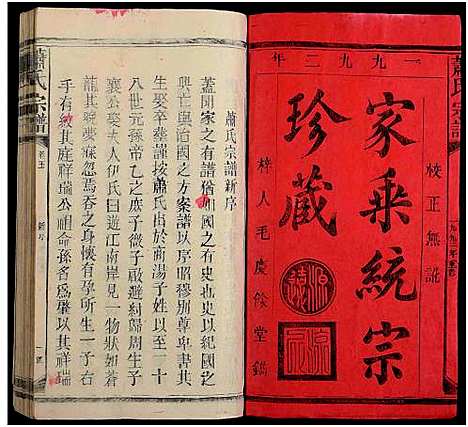 蕭氏宗譜
一九九二年
校正無訛
家乘統宗
珍藏
梓人毛慶餘堂鐫
源遠
流
蕭氏宗譜新序
蓋聞家之有譜猶如國之有史也以紀國之
興亡與治國之方案譜以序昭穆別尊卑書其
生娶卒塟謹按蕭氏出於商湯子姓以至一十
八世元孫帝乙之庶子微子啟避紂歸周生子
襄公娶夫人伊氏曰遊江南岸見一物狀如蒼
龍其夢寐忽焉吞之身懷有孕所生一子
手有紋其庭祥瑞公祖命孫名為肇以其祥瑞
蕭氏宗譜
新序